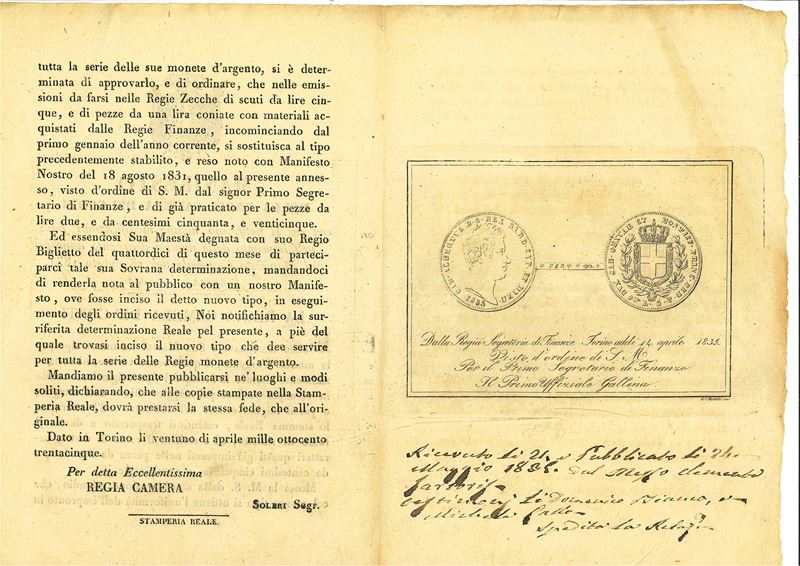 tutta la serie delle sue monete d'argento, si è deter-
minata di approvarlo, e di ordinare, che nelle emis-
sioni da farsi nelle Regie Zecche di scuti da lire cin-
que, e di pezze da una lira coniate con materiali ac-
quistati dalle Regie Finanze, incominciando dal
primo gennaio dell'anno corrente, si sostituisca al tipo
precedentemente stabilito, e reso noto con Manifesto
Nostro del 18 agosto 1831, quello al presente annes-
so, visto d'ordine di S. M. dal signor Primo Segre-
tario di Finanze, e di già praticato per le pezze da
lire due, e da centesimi cinquanta, e venticinque.
Ed essendosi Sua Maestà degnata con suo Regio
Biglietto del quattordici di questo mese di parteci-
parci tale sua Sovrana determinazione, mandandoci
di renderla nota al pubblico con un nostro Manife-
sto, ove fosse inciso il detto nuovo tipo, in esegui-
mento degli ordini ricevuti, Noi notifichiamo la sur-
riferita determinazione Reale pel presente, a piè del
quale trovasi inciso il nuovo tipo che dee servire
per tutta la serie delle Regie monete d'argento.
Mandiamo il presente pubblicarsi ne' luoghi e modi
soliti, dichiarando, che alle copie stampate nella Stam-
peria Reale, dovrà prestarsi la stessa fede, che all'ori-
ginale.
Dato in Torino li ventuno di aprile mille ottocento
trentacinque.
Per detta Eccellentissima
REGIA CAMERA
SOLERI Segr.
STAMPERIA REALE.
CAR. ALBERTUS D. G. REX SARD. CYP. ET HIER.
1835
DUX SAB. GENUAE ET MONTISF. PRINC. PED. &
L. 5
Dalla Regia Segreteria di Finanze Torino addì 14 aprile 1835.
Visto d'ordine di S. M.
Per il Primo Segretario di Finanze
Il Primo Uffiziale Gallina
Ricevuto li 21 e Pubblicato li 24
Maggio 1835. dal Messo
li Domenico
Michele
spedita la